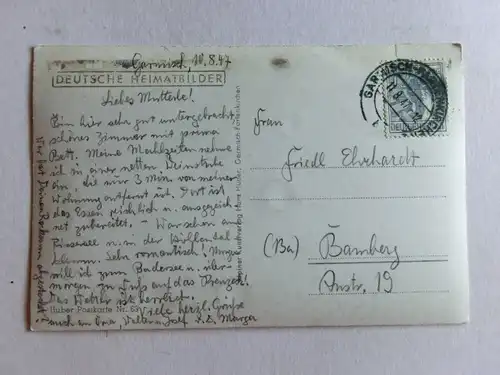 Garmisch, 10.8.47
DEUTSCHE HEIMATBILDER
Liebes Mutterle!
Bin hier sehr gut untergebracht,
schönes Zimmer mit prima
Bett. Meine Mahlzeiten nehme
ich in einer netten Weinstube
ein, die nur 3 Min. von meiner
Wohnung entfernt ist. Dort ist
das Essen reichlich u. ausgezeich-
net zubereitet. Waren schon am
Riessersee u. in der Höllental-
klamm. Sehr romantisch! Morgen
will ich zum Badersee u. über-
morgen zu Fuß auf das Kreuzeck.
Das Wetter ist herrlich.
Viele herzl. Grüße
auch an Josef
Huber Postkarte Nr.
Wer hat Deine abgeholt?
Huber, Garmisch-Partenkirchen
GARMISCH-PARTENKIRCHEN
11.8.47
Frau
Friedl Ehrhardt
(13a) Bamberg
Amstr. 19